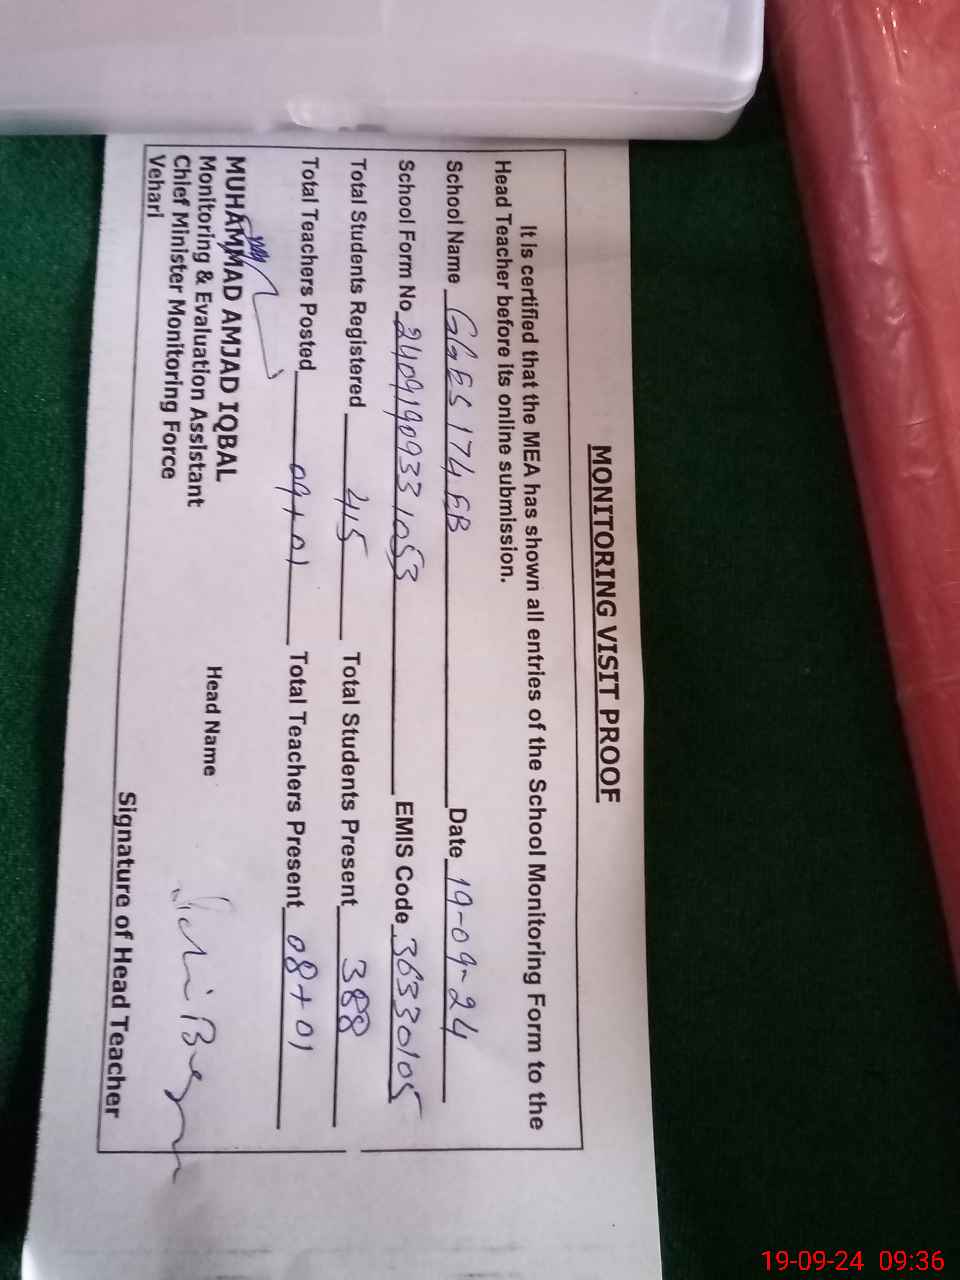 MONITORING VISIT PROOF
It is certified that the MEA has shown all entries of the School Monitoring Form to the
Head Teacher before its online submission.
School Name GGES 174 EB Date 19-09-24
School Form No 2409190933 1053 EMIS Code 36330105
Total Students Registered 415 Total Students Present 388
Total Teachers Posted 09+01 Total Teachers Present 08+01
MUHAMMAD AMJAD IQBAL
Monitoring & Evaluation Assistant Head Name
Chief Minister Monitoring Force
Vehari
Signature of Head Teacher
19-09-24 09:36